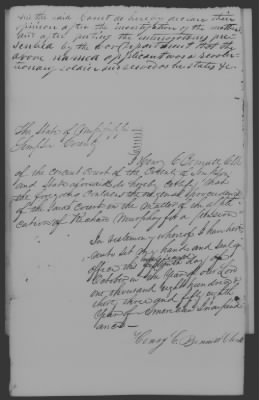 And the said Court do hereby declare their
opinion after the investigation of the matter
and after putting the interrogatories pre-
scribed by the War Department that the
above named applicant was a revolu-
tionary soldier and served as he states &c.
The State of Mississippi
County
I Henry C. Bennett Clk
of the Circuit Court of the County of
and State aforesaid do hereby certify that
the foregoing contains the original proceedings
of the said Court in the matter of the appli-
cation of Murphy for a pension
In testimony whereof I have here
unto set my hand and seal of
office this day of
October in the Year of our Lord
one thousand eight hundred &
thirty three and fifty eighth
Year of American Independ
ance—
Henry C Bennett Clerk